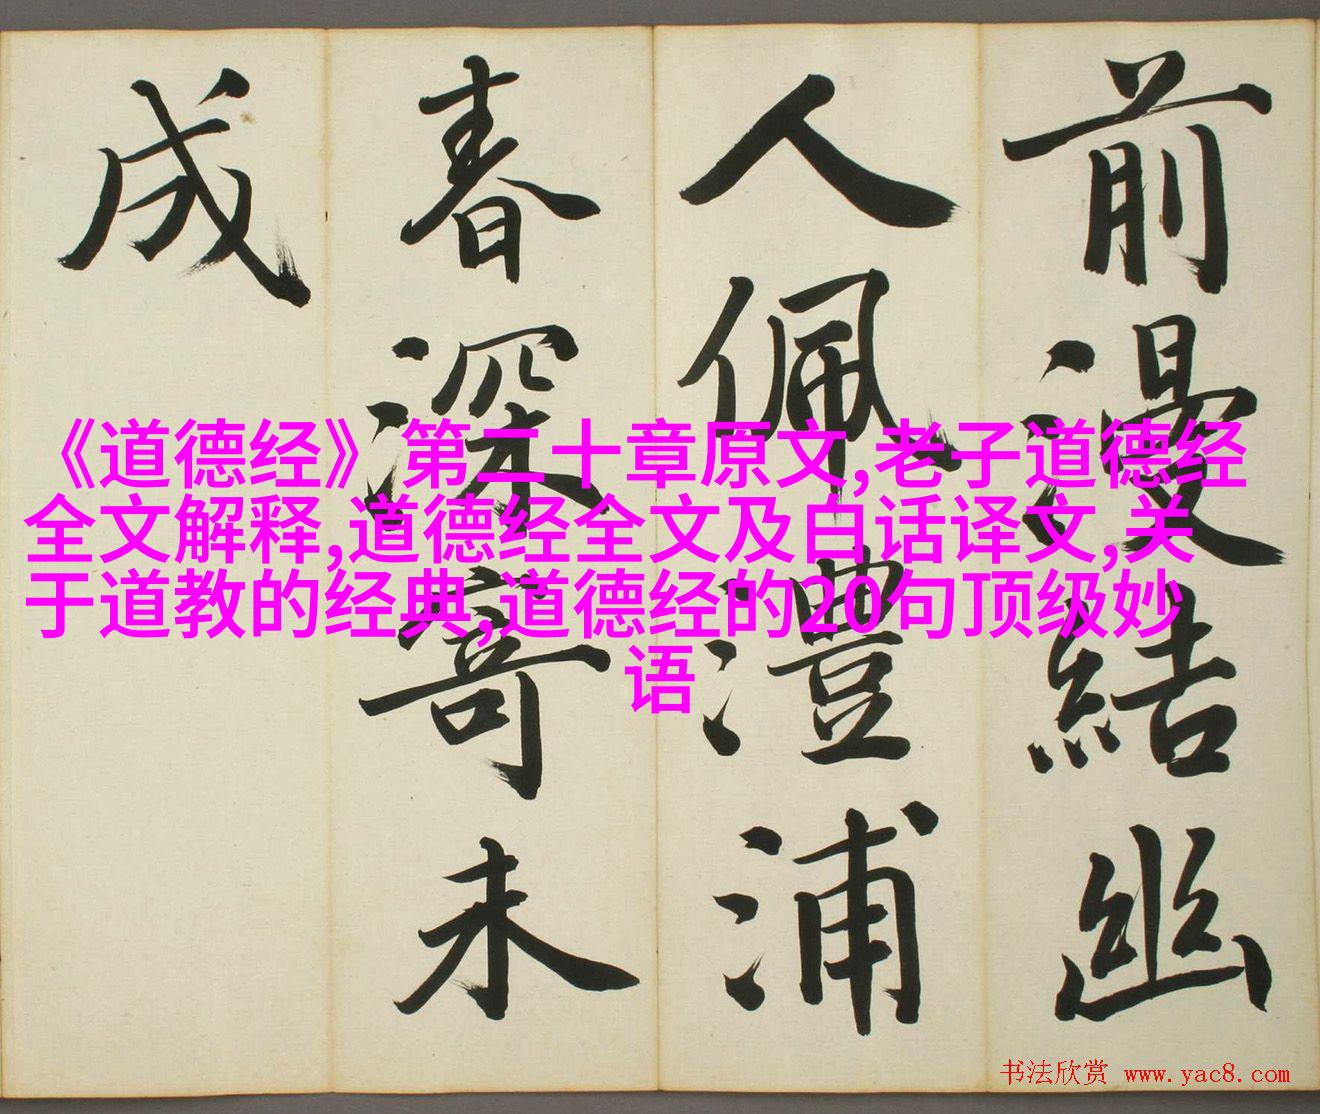 前漫結幽
人佩澧浦
春深寄未
成
《道德经》第二十章原文,老子道德经
全文解释,道德经全文及白话译文,关
于道教的经典,道德经的20句顶级妙
语
书法欣赏 www.yac8.com